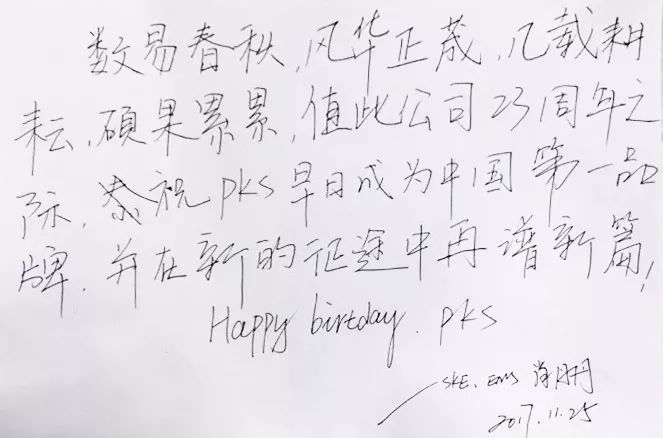 数易春秋,风华正茂,几载耕
耘,硕果累累,值此公司23周年之
际,恭祝pks早日成为中国第一品
牌,并在新的征途中再谱新篇!
Happy birtday. pks
SKE. EMS 肖丹丹
2017.11.25